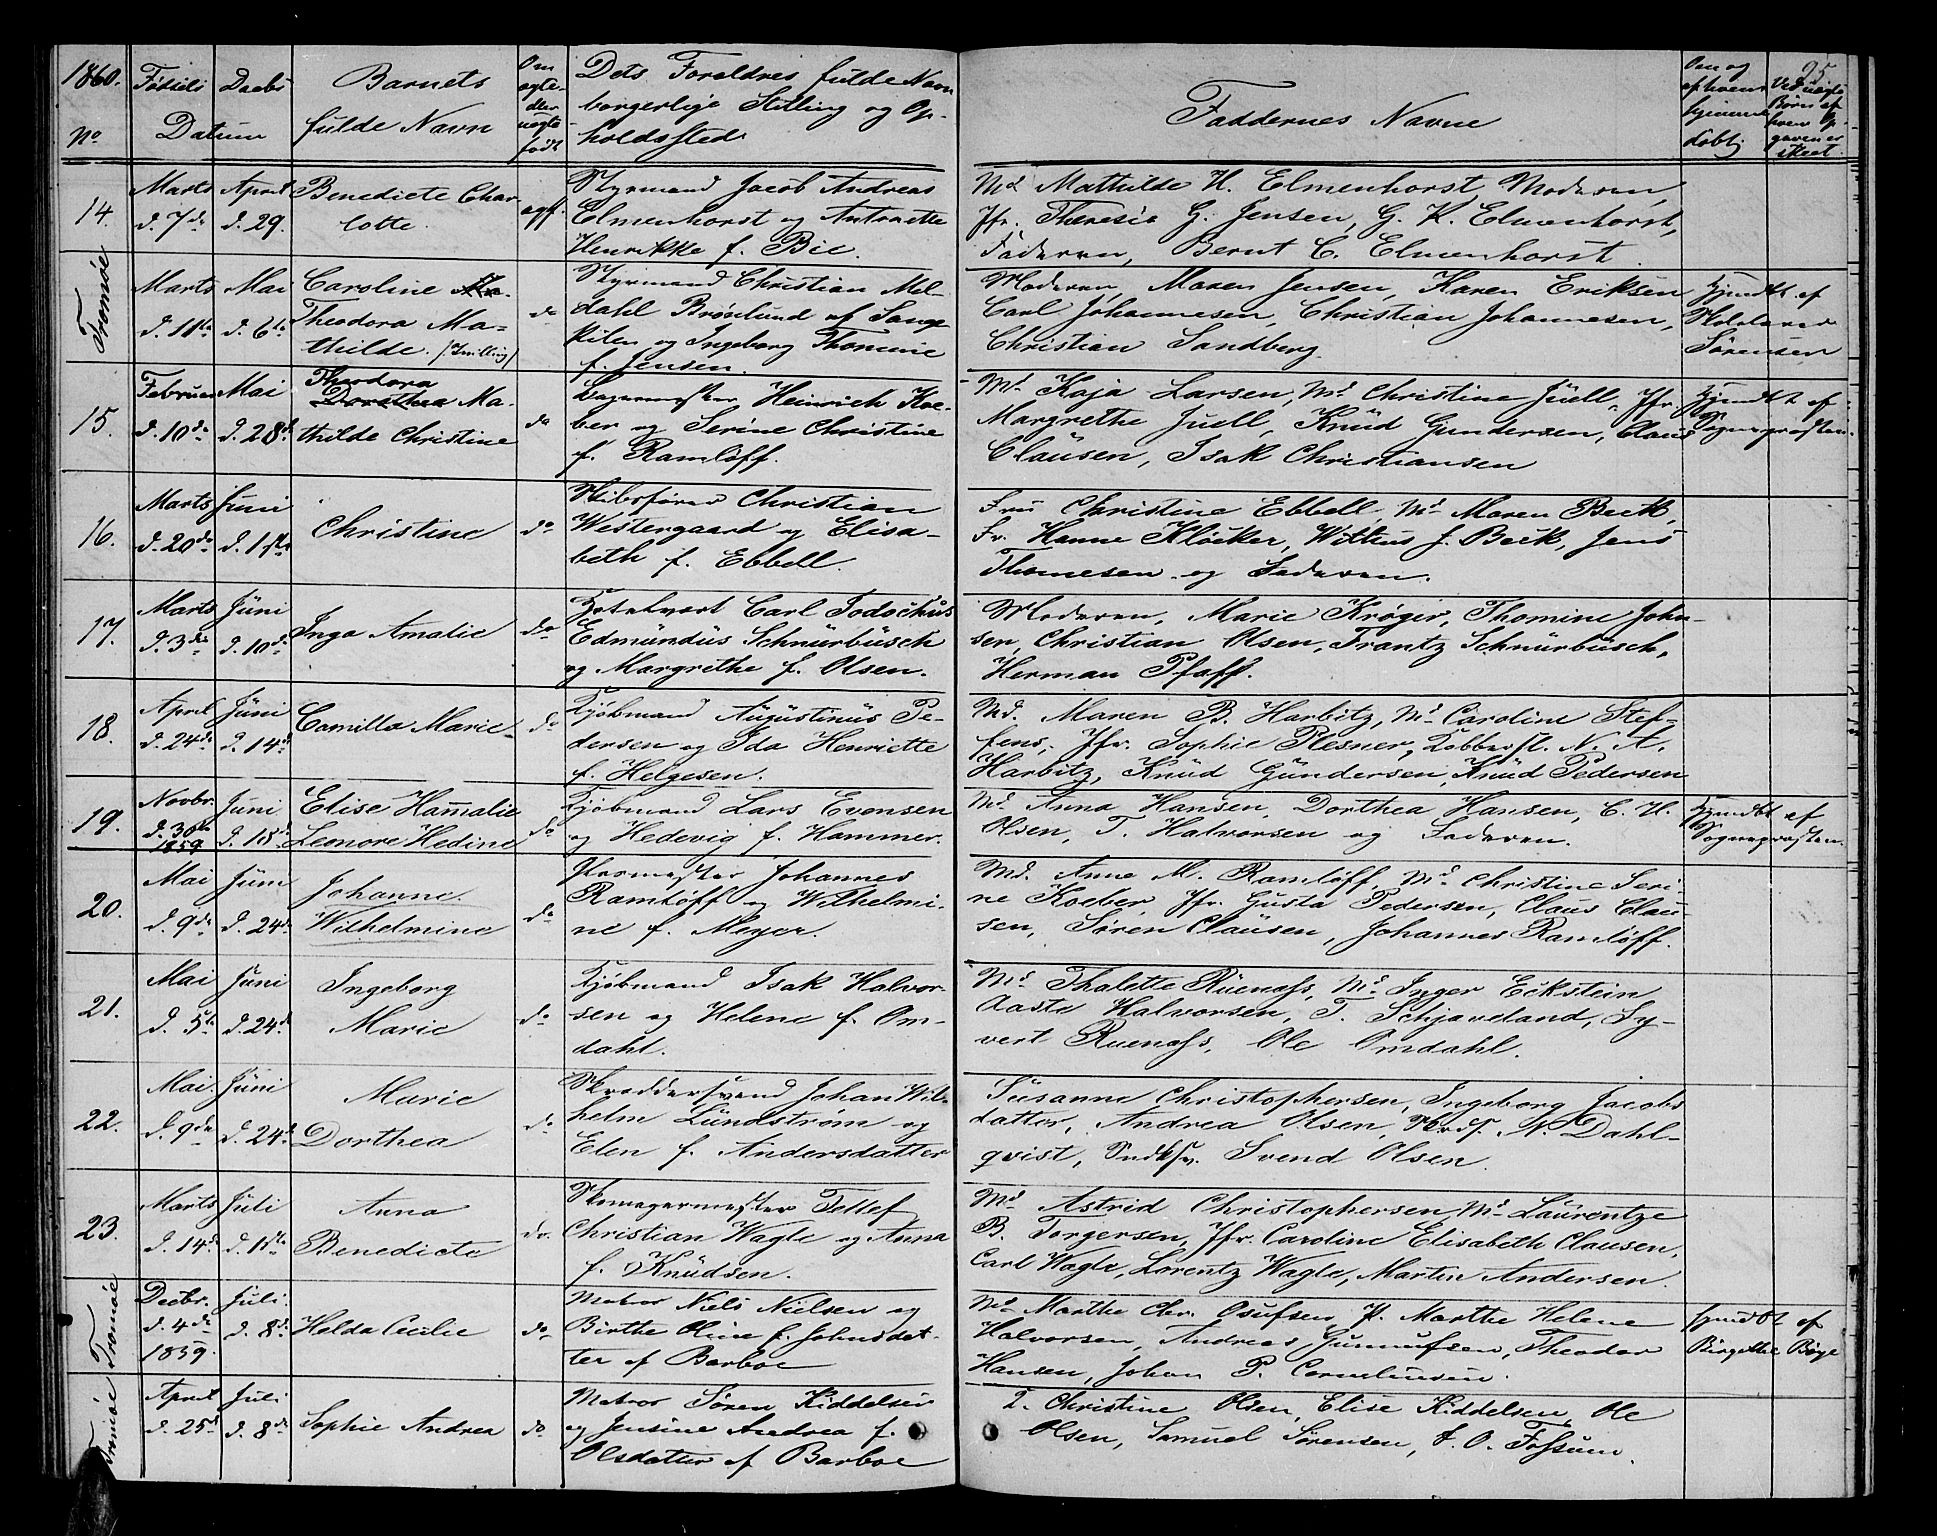 1860.
No
Fødsels Daabs
Datum
Barnets
fulde Navn
Om
ægte
eller
uægte
født
Dets Forældres fulde Navn
borgerlige Stilling og Op-
holdssted
Faddernes Navne
Om og
af hvem
hjemme
døbt
95.
Ved uægte
Børn af
hvem Op-
gaven er
skeet.
14. Marts April Benedicte Char-
d. 7de d. 29. lotte. ægt.
Styrmand Jacob Andreas
Elmenhorst og Antonette
Henrikke f. Bie.
Md Mathilde H. Elmenhorst, Moderen,
Jfr. Theresia G. Jensen, G. K. Elmenhorst,
Faderen, Bernt C. Elmenhorst.
Tromøe
Marts Mai Caroline
d. 11te d. 6te Theodora Ma-
thilde. /Tvilling/
do
Styrmand Christian Mel-
dahl Brøslund af Songe
Kilen og Ingeborg Thomine
f. Jensen.
Moderen, Maren Jensen, Karen Eriksen
Carl Johannesen, Christian Johannesen,
Christian Sandberg.
hjemdt af
Sørensen
15. Februar Mai Theodora
Dorothea Ma-
d. 10de d. 28de thilde Christine do
Bagermester Heinrich Koe-
ber og Serine Christine
f. Ramløff.
Md. Kaja Larsen, Md Christine Juell, Jfr.
Margrethe Juell, Knud Gundersen, Claus
Clausen, Isak Christiansen
hjemdt af
Sognepræsten.
16. Marts Juni Christine do
d. 20de d. 1ste
Skibsfører Christian
Westergaard og Elisa-
beth f. Ebbell.
Fru Christine Ebbell, Md Maren Beck,
Fr. Hanne Kløcker, Wilhus f. Beck, Jens
Thomesen og Faderen.
17. Marts Juni Inga Amalie do
d. 3die d. 10de
Carl Jodochus
Edmundus Schnurbusch
og Margrithe f. Olsen.
Moderen, Marie Krøger, Thomine John-
sen, Christian Olsen, Frantz Schnurbusch,
Herman Pfaff.
18. April Juni Camilla Marie do
d. 24de d. 14de
Kjøbmand Augustinus Pe-
dersen og Ida Henriette
f. Helgesen.
Md. Maren B. Harbitz, Md Caroline Stef-
fens, Jfr. Sophie Plesner, Kobberst. N. A.
Harbitz, Knud Gundersen, Knud Pedersen
19. Novbr. Juni Elise Hamalie
d. 30te d. 18de Leonore Hedine do
1859
Kjøbmand Lars Evensen
og Hedevig f. Hammer.
Md. Anna Hansen, Dorthea Hansen, C. H.
Olsen, T. Halvorsen og Faderen.
hjemdt af
Sognepræsten.
20. Mai Juni Johanne
d. 9de d. 24de Wilhelmine do
Johannes
Ramløff og Wilhelmi-
ne f. Meyer.
Md. Anne M. Ramløff, Md Christine Seri-
ne Koeber, Jfr. Gusta Pedersen, Claus Clau-
sen, Søren Clausen, Johannes Ramløff.
21. Mai Juni Ingeborg
d. 5te d. 24de Marie do
Kjøbmand Isak Halvor-
sen og Helene f. Om-
dahl.
Md Thalette Ruenæss, Md Inger Eckstein
Aaste Halvorsen, T. Schjaveland, Sy-
vert Ruenæss, Ole Omdahl.
22. Mai Juni Marie
d. 9de d. 24de Dorthea do
Skræddersvend Johan Wil-
helm Lundstrøm og
Elen f. Andersdatter
Susanne Christophersen, Ingeborg Jacobs
datter, Andrea Olsen, N. Dahl-
qvist, Svend Olsen.
23. Marts Juli Anna
d. 14de d. 1ste Benedicte do.
Skomagermester Tellef
Christian Wagle og Anna
f. Knudsen.
Md Astrid Christophersen, Md Laurentze
B. Torgersen, Jfr. Caroline Elisabeth Clausen,
Carl Wagle, Lorentz Wagle, Martin Andersen.
Tromøe
Decbr. Juli. Helda Cecilie do
d. 4de d. 8de
1859.
Matros Niels Nielsen og
Birthe Oline f. Johnsdat-
ter af Barboe
Md Marthe Chr. Osufsen, P. Marthe Helene
Halvorsen, Andreas Gunnufsen, Theodor
Hansen, Johan P. Corneliusen.
hjemdt af
Birgitte Bøye
Tromøe
April Juli Sophie Andrea do
d. 25de d. 8de
Matros Søren Kiddelsen
og Jensine Andrea f.
Olsdatter af Barboe
Christine Olsen, Elise Kiddelsen, Ole
Olsen, Samuel Sørensen, F. O. Fossum.